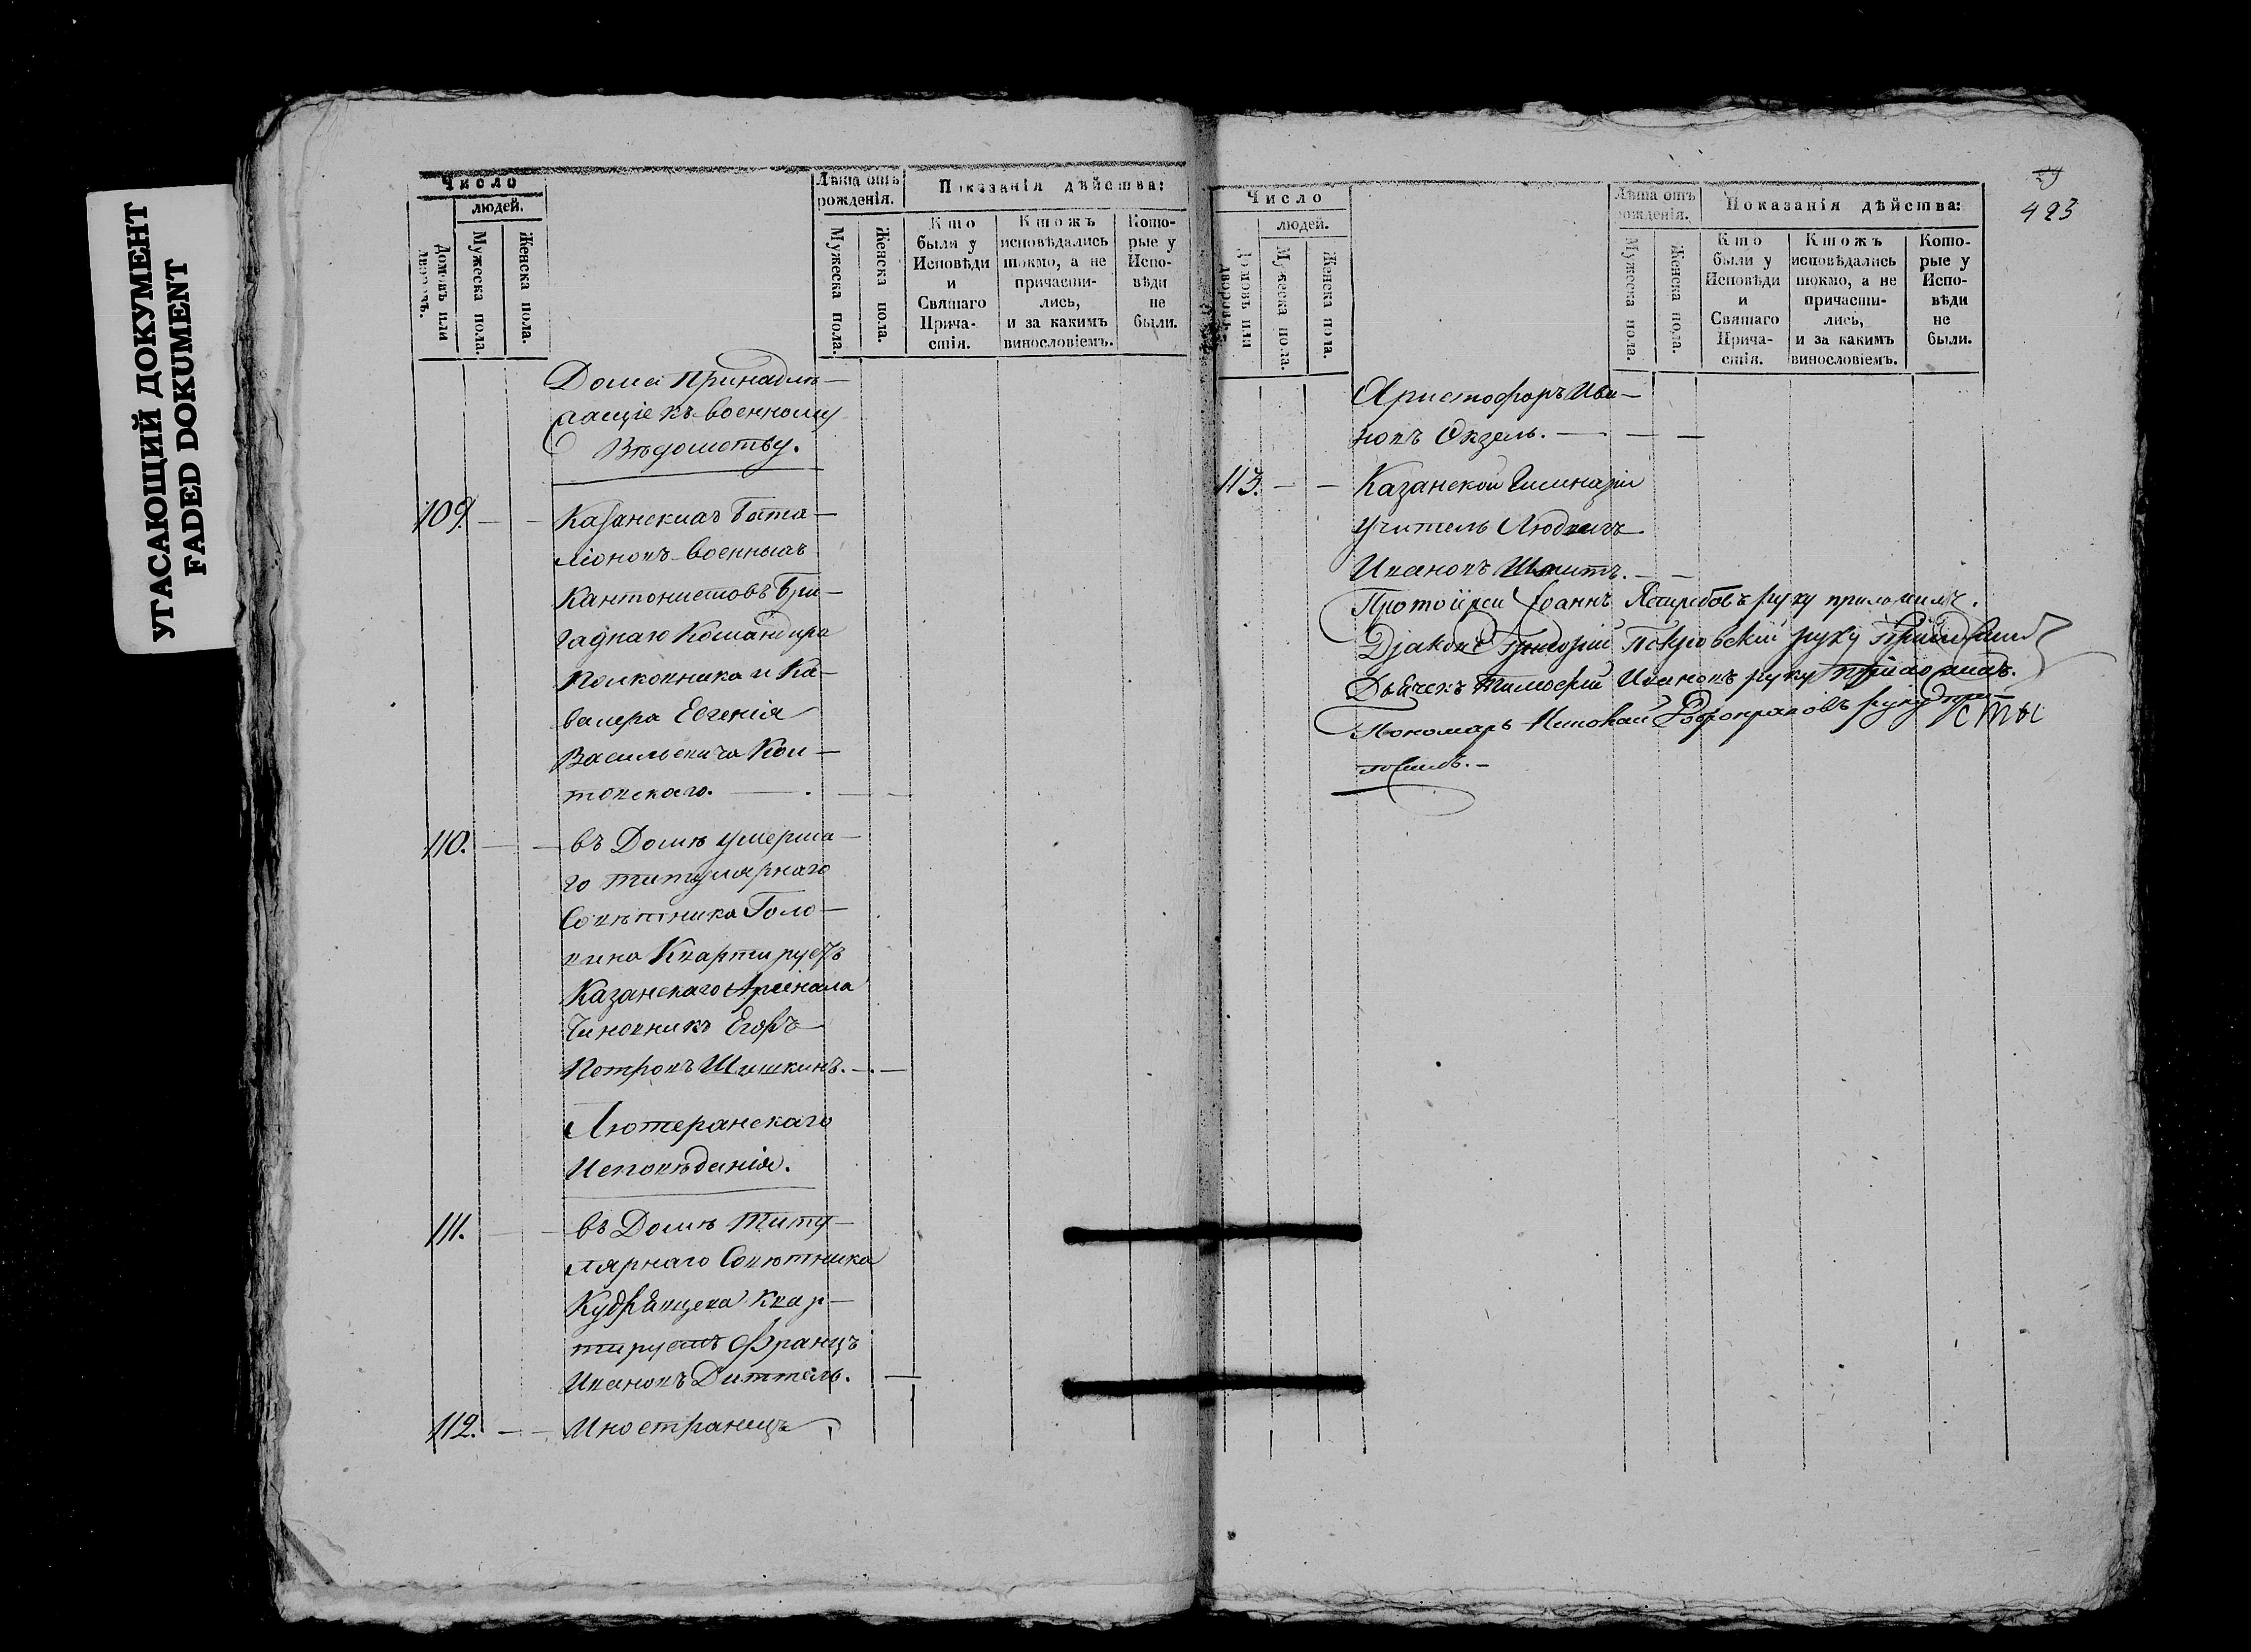 УГАСАЮЩИЙ ДОКУМЕНТ
FADED DOKUMENT
Число
людей.
Домовъ или дворовъ.
Мужеска пола.
Женска пола.
Лѣта отъ рожденія.
Мужеска пола.
Женска пола.
Показанія дѣйства:
Кто были у Исповѣди и Святаго Причастія.
Ктожъ исповѣдались токмо, а не причастились, и за какимъ винословіемъ.
Которые у Исповѣди не были.
Дома принадле-
жащіе къ военному
Вѣдомству.
109. Казанскихъ Бата-
ліоновъ военныхъ
Кантонистовъ Бри-
гаднаго Командира
Полковника и Ка-
валера Евгенія
Васильевича
товскаго.
110. въ Домѣ умерша-
го титулярнаго
Совѣтника Голо-
вина Квартируетъ
Казанскаго Арсенала
Чиновникъ Егоръ
Петровъ Шишкинъ.
Лютеранскаго
Исповѣданія.
111. въ Домѣ Титу-
лярнаго Совѣтника
Кудрявцева Квар-
тируетъ Францъ
Ивановъ Диттель.
112. Иностранецъ
423
Число
людей.
Домовъ или дворовъ.
Мужеска пола.
Женска пола.
Лѣта отъ рожденія.
Мужеска пола.
Женска пола.
Показанія дѣйства:
Кто были у Исповѣди и Святаго Причастія.
Ктожъ исповѣдались токмо, а не причастились, и за какимъ винословіемъ.
Которые у Исповѣди не были.
Христофоръ Ива-
новъ Окзель.
113. Казанской Гимназіи
учитель Людвигъ
Ивановъ Шмитъ.
Протоіерей Іоаннъ Ястребовъ руку приложилъ.
Діаконъ Григорій Покровскій руку приложилъ
Дьячекъ Тимофей Ивановъ руку приложилъ.
Пономарь Николай руку при-
ложилъ.
сты